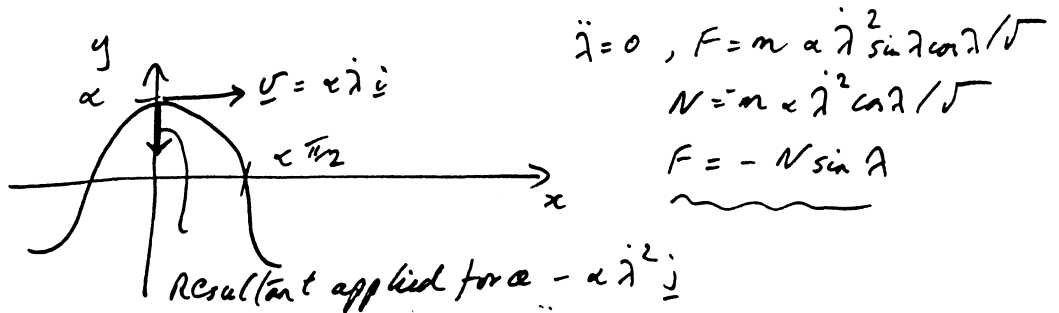 y
α
v = α λ̇ i
α π/2
x
Resultant applied force - α λ̇² j
λ̈ = 0 , F = m α λ̇² sin λ cos λ / √
N = -m α λ̇² cos λ / √
F = - N sin λ